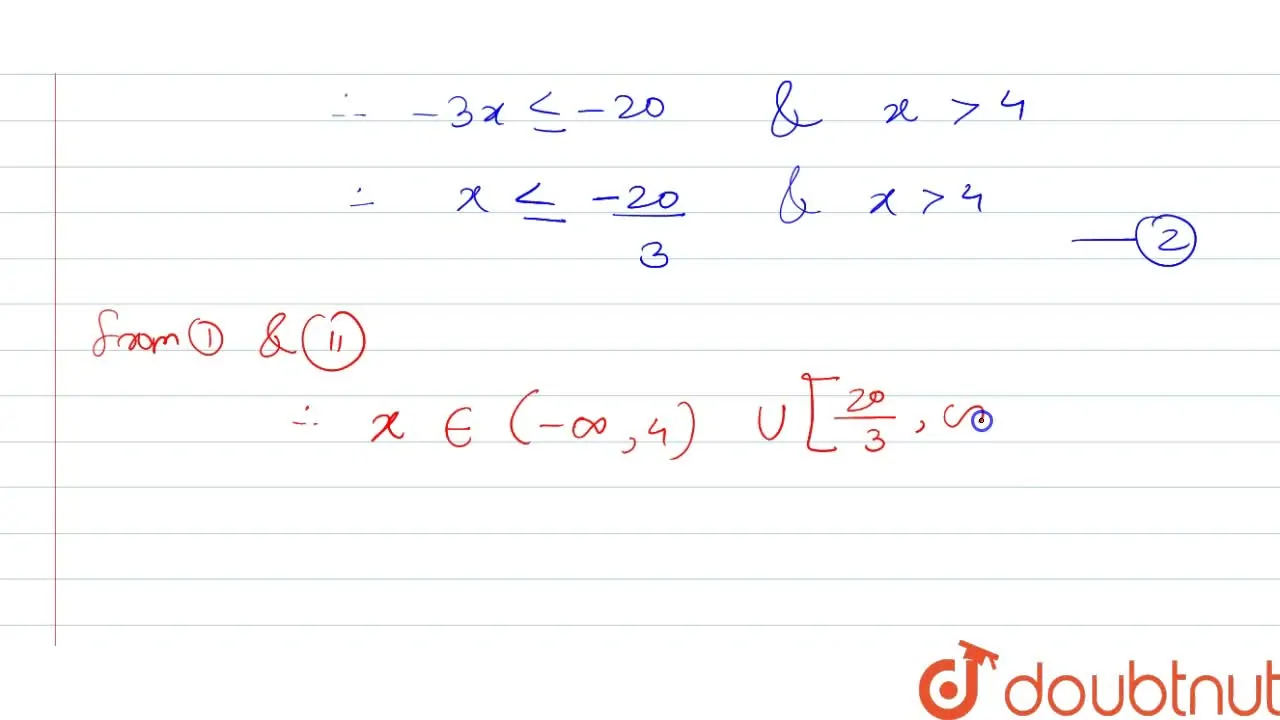 ∴ -3x ≤ -20 & x > 4
∴ x ≤ -20/3 & x > 4 —②
from ① & ⑪
∴ x ∈ (-∞, 4) ∪ [20/3, ∞
doubtnut